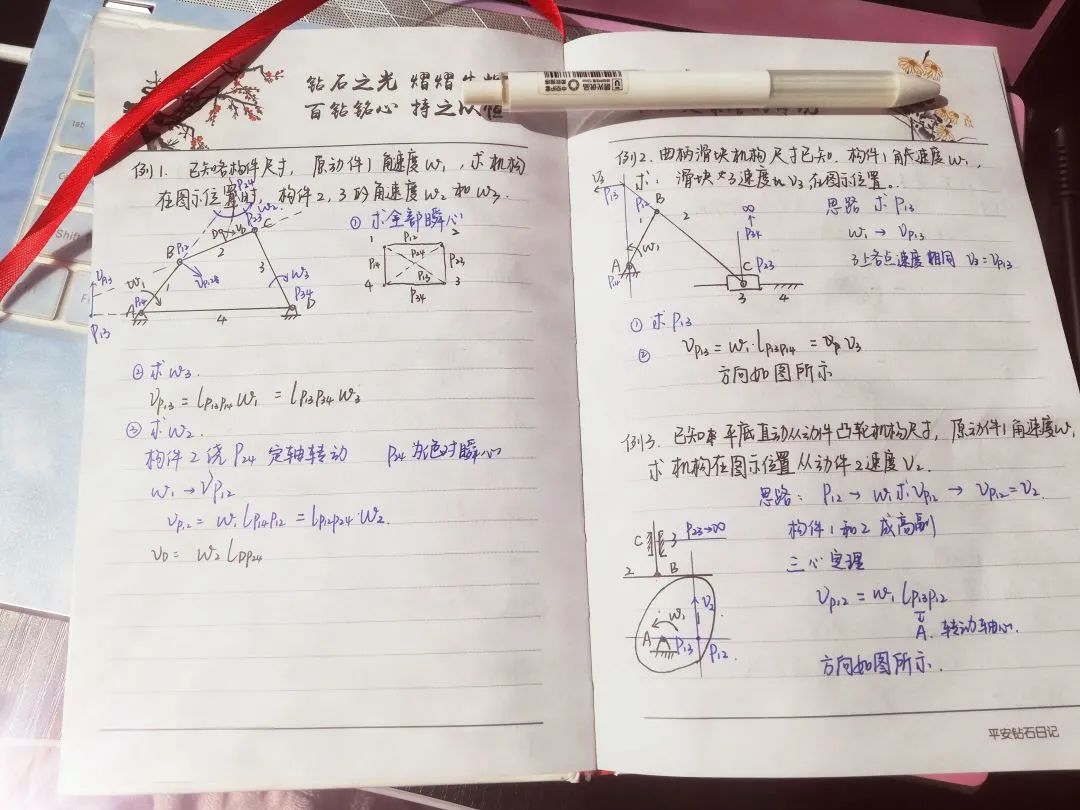 钻石之光 熠熠
百钻铭心 持之以恒
例1. 已知各构件尺寸, 原动件1角速度w₁, 求机构
在图示位置时, 构件2, 3的角速度w₂和w₃.
① 求全部瞬心
P24
w₂
P23
C
D
B
P12
2
3
w₃
P34
D
VP12
VP13
w₁
P14
A
P13
4
1
P12
2
P14
P24
P23
P13
4
P34
3
② 求w₃.
VP13 = lP13P14 w₁ = lP13P34 w₃
③ 求w₂.
构件2绕P24定轴转动 P24为绝对瞬心
w₁→VP12
VP12 = w₁ lP14P12 = lP12P24·w₂.
VD = w₂ lDP24
例2. 曲柄滑块机构尺寸已知. 构件1角速度w₁,
求: 滑块3速度V₃在图示位置.
V₃
P13
P12
B
1
2
w₁
A
P14
∞
P34
C
P23
3
4
思路 求P13
w₁→VP13
3上各点速度相同 V₃=VP13
① 求P13
② VP13 = w₁·lP13P14 = V₃
方向如图所示
例3. 已知平底直动从动件凸轮机构尺寸, 原动件1角速度w₁
求机构在图示位置从动件2速度V₂.
思路: P12→w₁求VP12→VP12=V₂.
C
3
P23→∞
2
B
V₂
w₁
A
P13
P12.
构件1和2成高副
三心定理
VP12 = w₁ lP13P12
A. 转动轴心.
方向如图所示.
平安钻石日记
tab
Shift